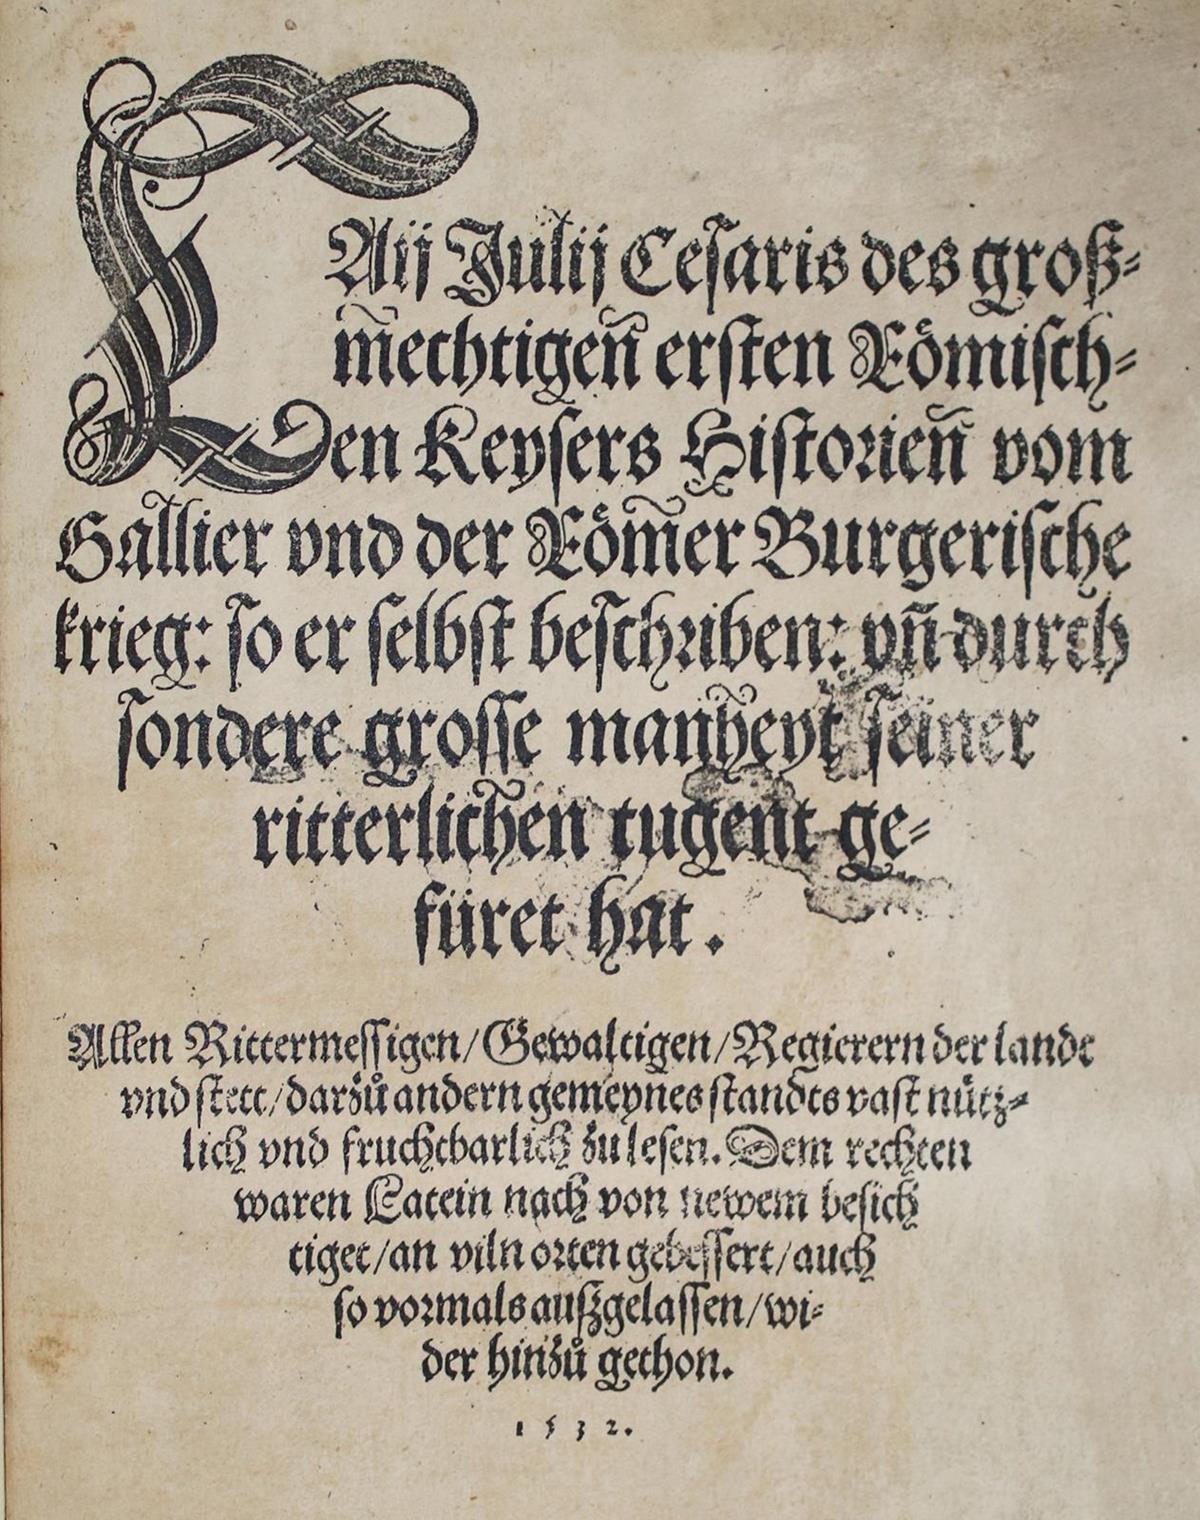 CAij Julij Cesaris des groß-
mechtigen̄ ersten Römisch-
en Keysers Historien̄ vom
Gallier vnd der Röm̄er Burgerische
krieg: so er selbst beschriben: vn̄ durch
sondere grosse manheyt seiner
ritterlichen tugent ge-
füret hat.
Allen Rittermessigen/Gewaltigen/Regierern der lande
vnd stett/darzů andern gemeynes standts vast nütz-
lich vnd fruchtbarlich zu lesen. Dem rechten
waren Latein nach von newem besich
tiget/an viln orten gebessert/auch
so vormals außgelassen/wi-
der hinzů gethon.
1532.